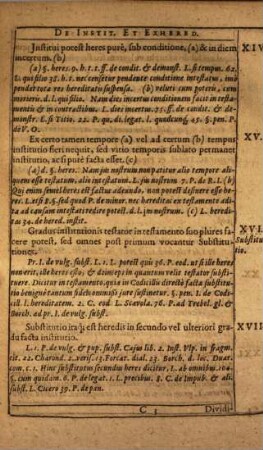 DE INSTIT. ET EXHERED.
Institui potest heres purè, sub conditione, (a) & in diem
incertum. (b)
XIV
(a) §. heres. 9. h. t. l. ff. de condit. & demonst. L. si tempus. 62.
L. qui filio 38. h. t. nec censetur pendente conditione intestatus, imò
pendet tota res hereditatis suspensa. (b) veluti cum poterit, cum
morieris. d. l. qui filio. Nam dies incertus conditionem facit in testa-
mentis & in contractibus. L. dies incertus. 75. ff. de condit. & de-
monst. L. si Titio. 22. P. qu. di. legat. l. quodcunq. 45. §. pen. P.
de V. O.
Ex certo tamen tempore (a) vel ad certum (b) tempus
institutio fieri nequit, sed vitio temporis sublato permanet
institutio, ac si purè facta esset. (c)
XV.
(a) d. §. heres. Nam jus nostrum non patitur alio tempore ab-
quem esse testatum, alio intestatum. L. jus nostrum 7. P. de R. I. (b)
Qui enim semel heres est factus adeundo, non potest desinere esse he-
res. L. si P. §. sed quod P. de minor. nec hereditas ex testamento adita
ad causam intestati redire potest. d. l. jus nostrum. (c) L. heredi-
tas 34. de hered. instit.
Gradus institutionis testator in testamento suo plures fa-
cere potest, sed omnes post primum vocantur Substitu-
tiones.
XVI.
Substitu-
tio.
Pr. I. de vulg. subst. l. 1. L. potest quis 36. P. eod. ut si ille heres
non erit, ille heres esto; & deinceps in quantum velit testator substi-
tuere. Dicitur in testamento, quia in Codicillis directò facta substitu-
tio benignitate jure fidei
L. hereditatem. 2. C. eod L. Scævola. 76. P. ad Trebel. gl. &
Borch. ad pr. I. de vulg. subst.
Substitutio itaq; est heredis in secundo vel ulteriori gra-
du facta institutio.
XVII
L. 1. P. de vulg. & pup. subst. Cajus lib. 2. Inst. Ulp. in fragm.
tit. 22. Charond. 2. 13. Forcat. dial. 23. Borch. d. loc. Duar.
com. c. 1. Hinc substitutus secundus heres dicitur. L. ab omnibus.
§. cum quidam. 6. P. de legat. 1. L. precibus. 8. C. de Impub. & ali.
subst. L. Cicero 39. P. de pœn.
C 3
Dividi-